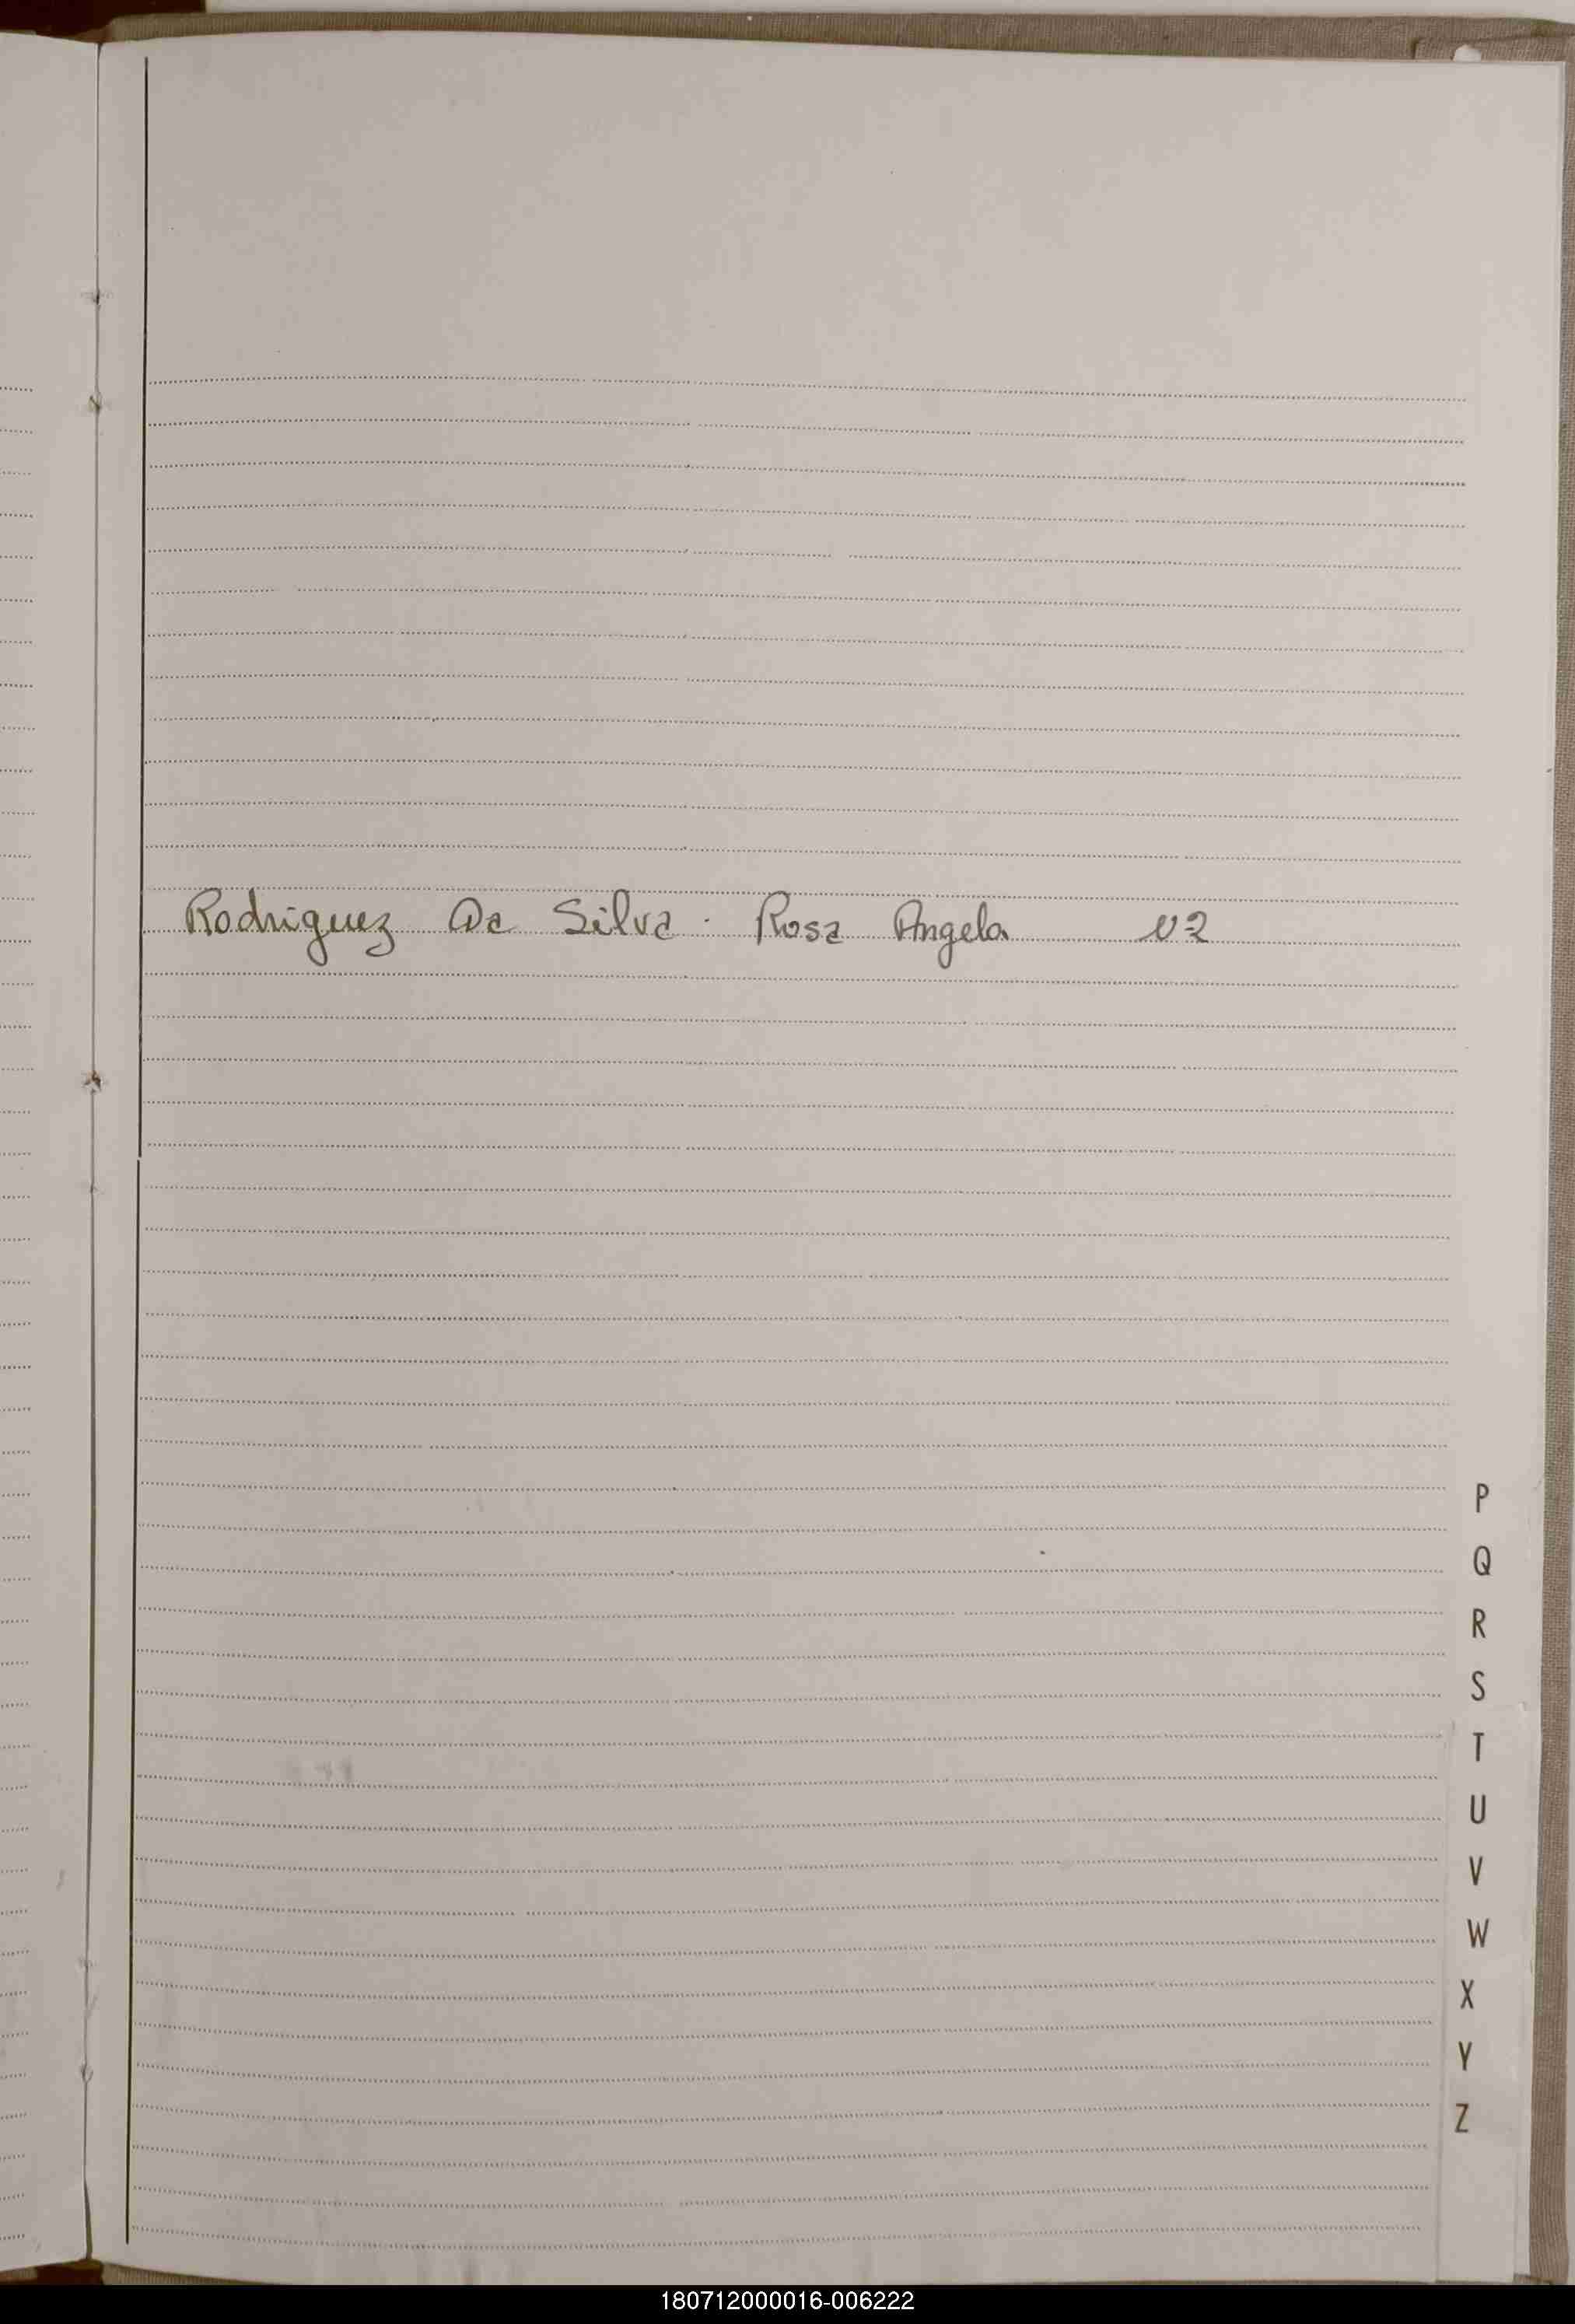 Rodriguez Da Silva. Rosa Angela v2
P
Q
R
S
T
U
V
W
X
Y
Z
180712000016-006222